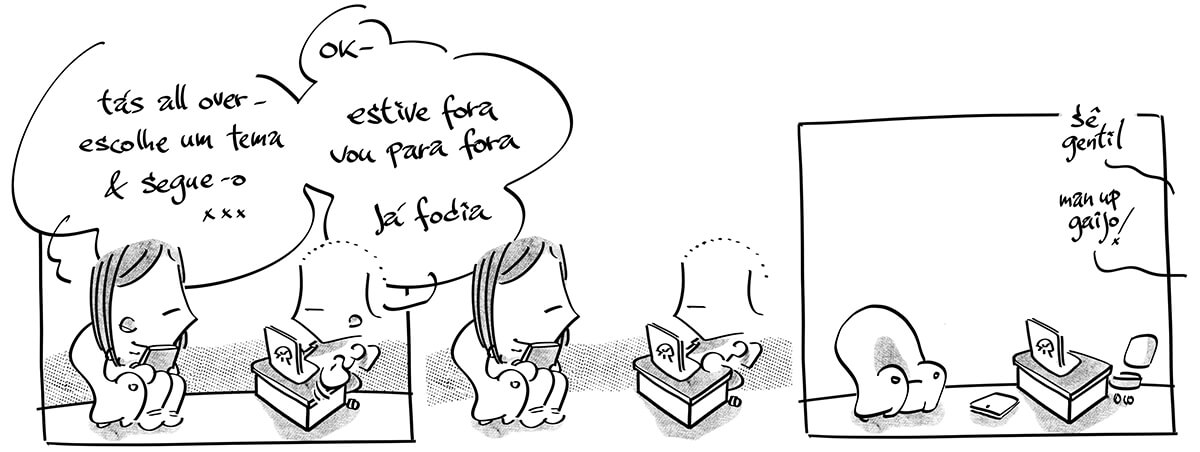 tás all over -
escolhe um tema
& segue-o
xxx
OK-
estive fora
vou para fora
Já fodia
sê
gentil
man up
gaijo!
x